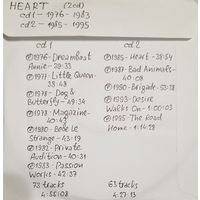 HEART (2cd)
cd1 - 1976 - 1983
cd2 - 1985 - 1995
cd1
℗1976 - Dreamboat
Annie - 39:33
℗1977 - Little Queen -
38:48
℗1978 - Dog &
Butterfly - 49:34
℗1978 - Magazine -
40:43
℗1980 - Bebe Le
Strange - 43:19
℗1982 - Private
Audition - 40:31
℗1983 - Passion
Works - 42:37
73 tracks
4:55:08
cd2
℗1985 - Heart - 38:54
℗1987 - Bad Animals -
40:08
℗1990 - Brigade - 53:38
℗1993 - Desire
Walks On - 1:00:03
℗1995 - The Road
Home - 1:14:28
63 tracks
4:27:13